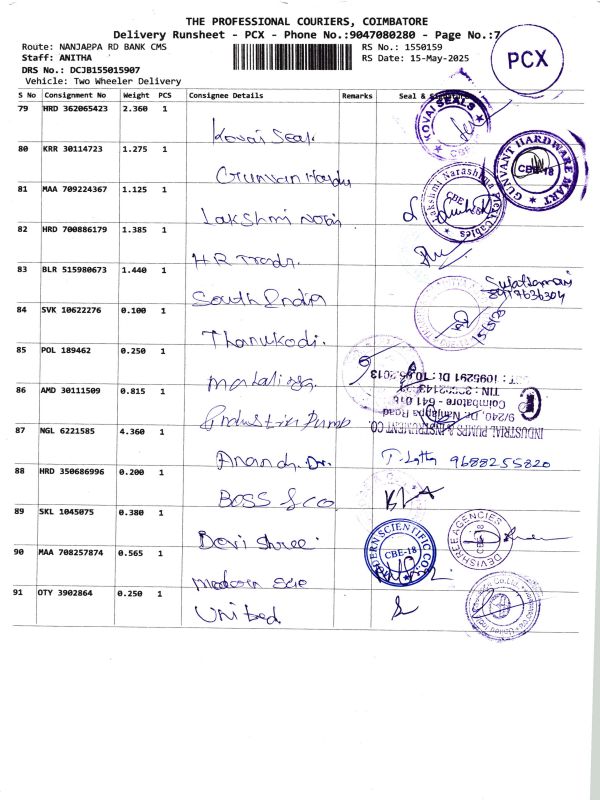 THE PROFESSIONAL COURIERS, COIMBATORE
Delivery Runsheet - PCX - Phone No.:9047080280 - Page No.:7
Route: NANJAPPA RD BANK CMS
RS No.: 1550159
Staff: ANITHA
RS Date: 15-May-2025
DRS No.: DCJB155015907
Vehicle: Two Wheeler Delivery
PCX
S No Consignment No Weight PCS Consignee Details Remarks Seal &
79 HRD 362065423 2.360 1 Kovai Seal
KOVAI SEALS
80 KRR 30114723 1.275 1
GUNVANT HARDWARE MART CBE-18
81 MAA 709224367 1.125 1 Lakshmi
Lakshmi Narashima CBE
82 HRD 700886179 1.385 1 HR Trade.
83 BLR 515980673 1.440 1 South India
84 SVK 10622276 0.100 1 Thanukodi.
15/5/25
85 POL 189462 0.250 1
86 AMD 30111509 0.815 1 Pump
INDUSTRIAL PUMPS & INSTRUMENT CO.
9/240, Dr. Nanjappa Road
Coimbatore - 641 018
87 NGL 6221585 4.360 1 Anand
9688255820
88 HRD 350686996 0.200 1 BOSS & CO
89 SKL 1045075 0.380 1 Devi Shree
DEVISHREE AGENCIES
90 MAA 708257874 0.565 1 modern
MODERN SCIENTIFIC CO. CBE-18
91 OTY 3902864 0.250 1 United